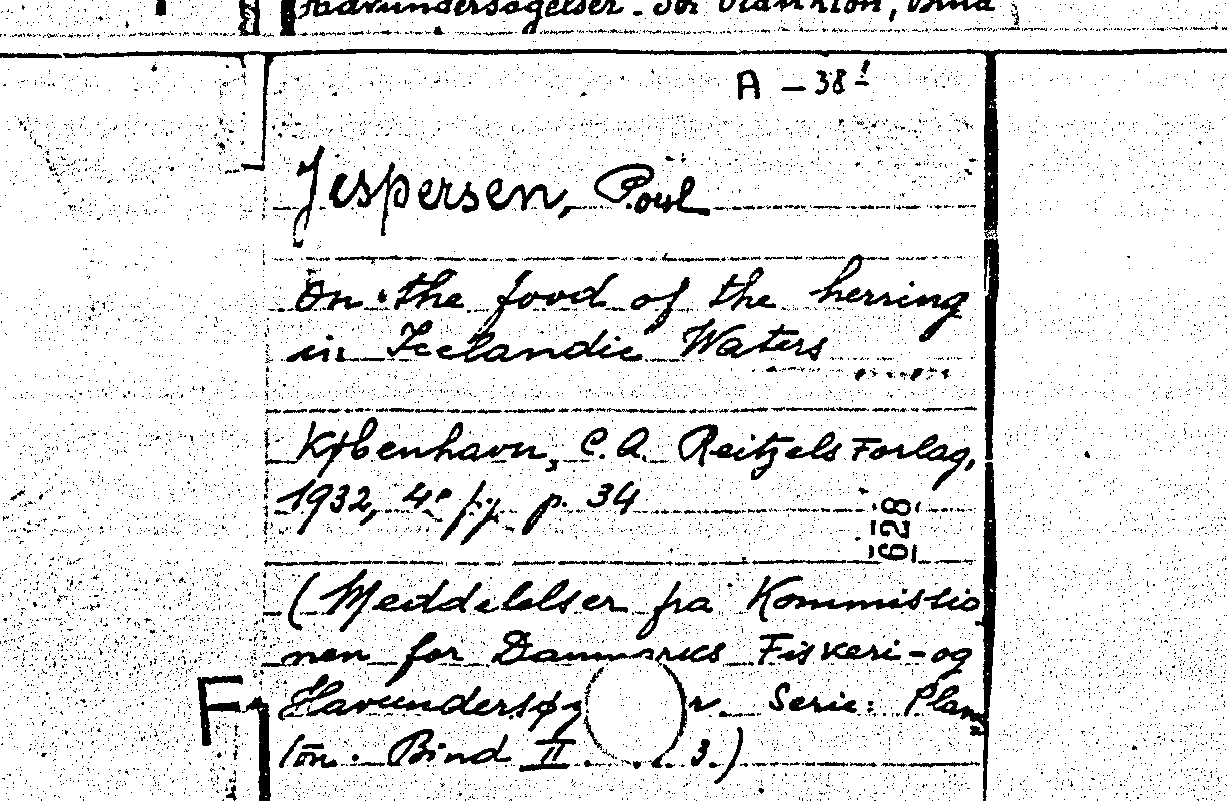 Havundersøgelser. Ser Plankton, Bind
A - 38!
Jespersen, Poul
On the food of the herring
in Icelandic Waters
København, C.A. Reitzels Forlag,
1932, 4º p. 34
628
(Meddelelser fra Kommissio
nen for Danmarks Fiskeri-og
Havundersøg r. Serie: Plank
ton. Bind II. 3.)
F